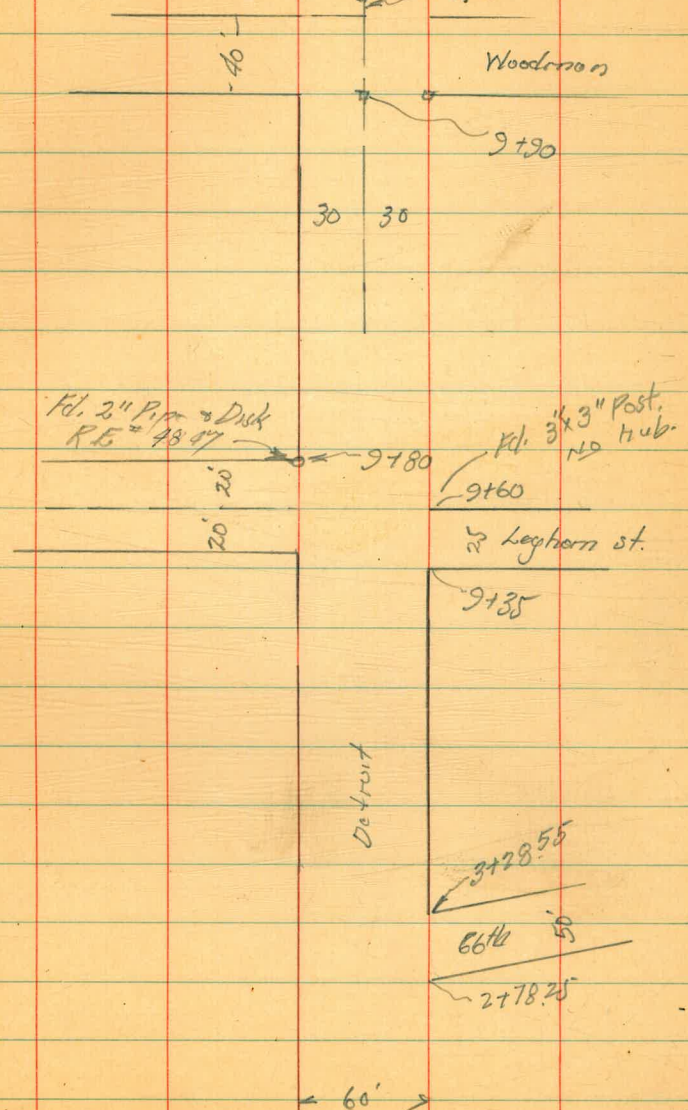 40'
Woodman
9+90
30 30
Fd. 2" Pipe & Disk
R.E #
9+80
Fd. 3"x3" Post.
No Hub.
9+60
20'
20'
25 Leghorn st.
9+35
Detroit
3+28.55
66th 50'
2+78.25
60'